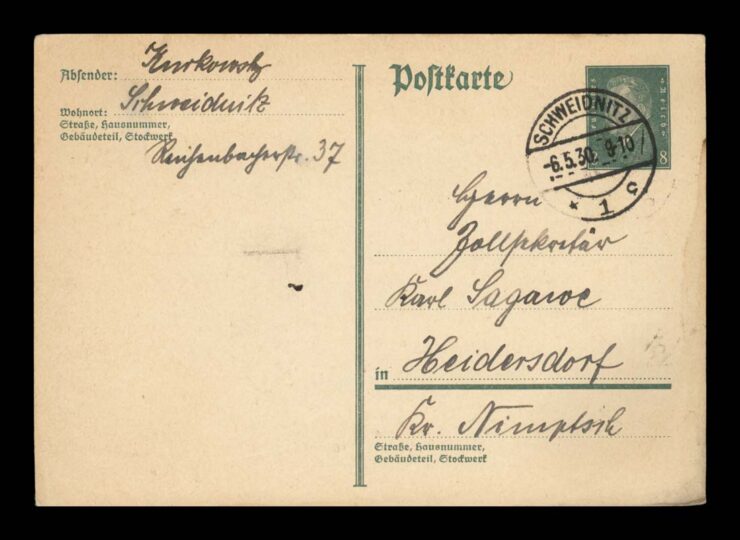 Absender: Kurkowsky
Wohnort: Schweidnitz
Straße, Hausnummer,
Gebäudeteil, Stockwerk
Reichenbacherstr. 37
Postkarte
Reich
8
SCHWEIDNITZ
-6.5.30. 9-10
* 1 c
Herrn
Zollsekretär
Karl Sagawe
in Heidersdorf
Kr. Nimptsch
Straße, Hausnummer,
Gebäudeteil, Stockwerk